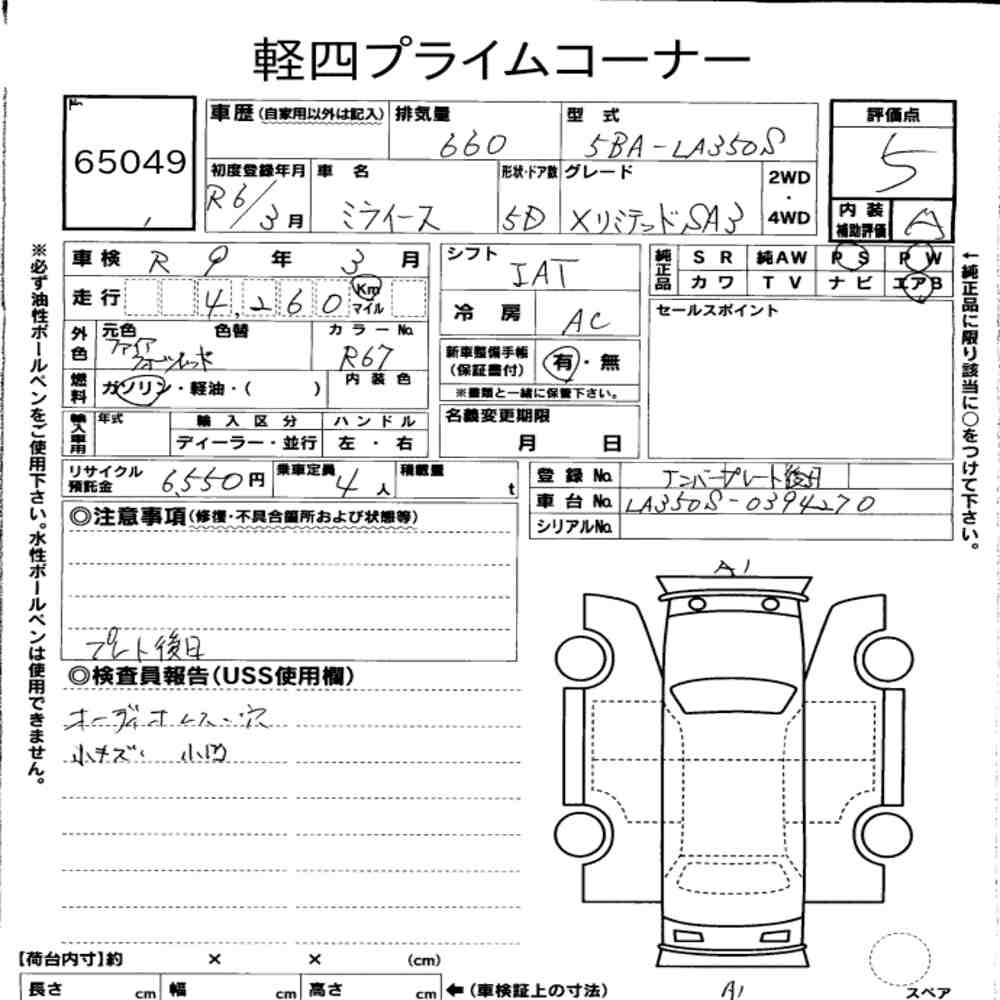 軽四プライムコーナー
65049
車歴 (自家用以外は記入) 排気量 660 型式 5BA-LA350S
初度登録年月 R6/3月 車名 ミライース 形状・ドア数 5D グレード XリミテッドSA3 2WD・4WD
評価点 5
内装補助評価 A
車検 R 9 年 3 月
走行 4,260 Km マイル
外色 元色 ファイアクォーツレッド 色替 カラーNo. R67
燃料 ガソリン・軽油・( ) 内装色
輸入車用 年式 輸入区分 ディーラー・並行 ハンドル 左・右
シフト IAT
冷房 AC
新車整備手帳(保証書付) 有・無
※書類と一緒に保管下さい。
名義変更期限 月 日
純正品 SR 純AW PS PW
カワ TV ナビ エアB
セールスポイント
リサイクル預託金 6,550円 乗車定員 4人 積載量 t
登録No. ナンバープレート後日
車台No. LA350S-0394270
シリアルNo.
◎注意事項(修復・不具合箇所および状態等)
プレート後日
◎検査員報告(USS使用欄)
オーディオレス、穴
小キズ、小凹
A1
A1
スペア
【荷台内寸】約 × × (cm)
長さ cm 幅 cm 高さ cm ←(車検証上の寸法)
※必ず油性ボールペンをご使用下さい。水性ボールペンは使用できません。
←純正品に限り該当に○をつけて下さい。